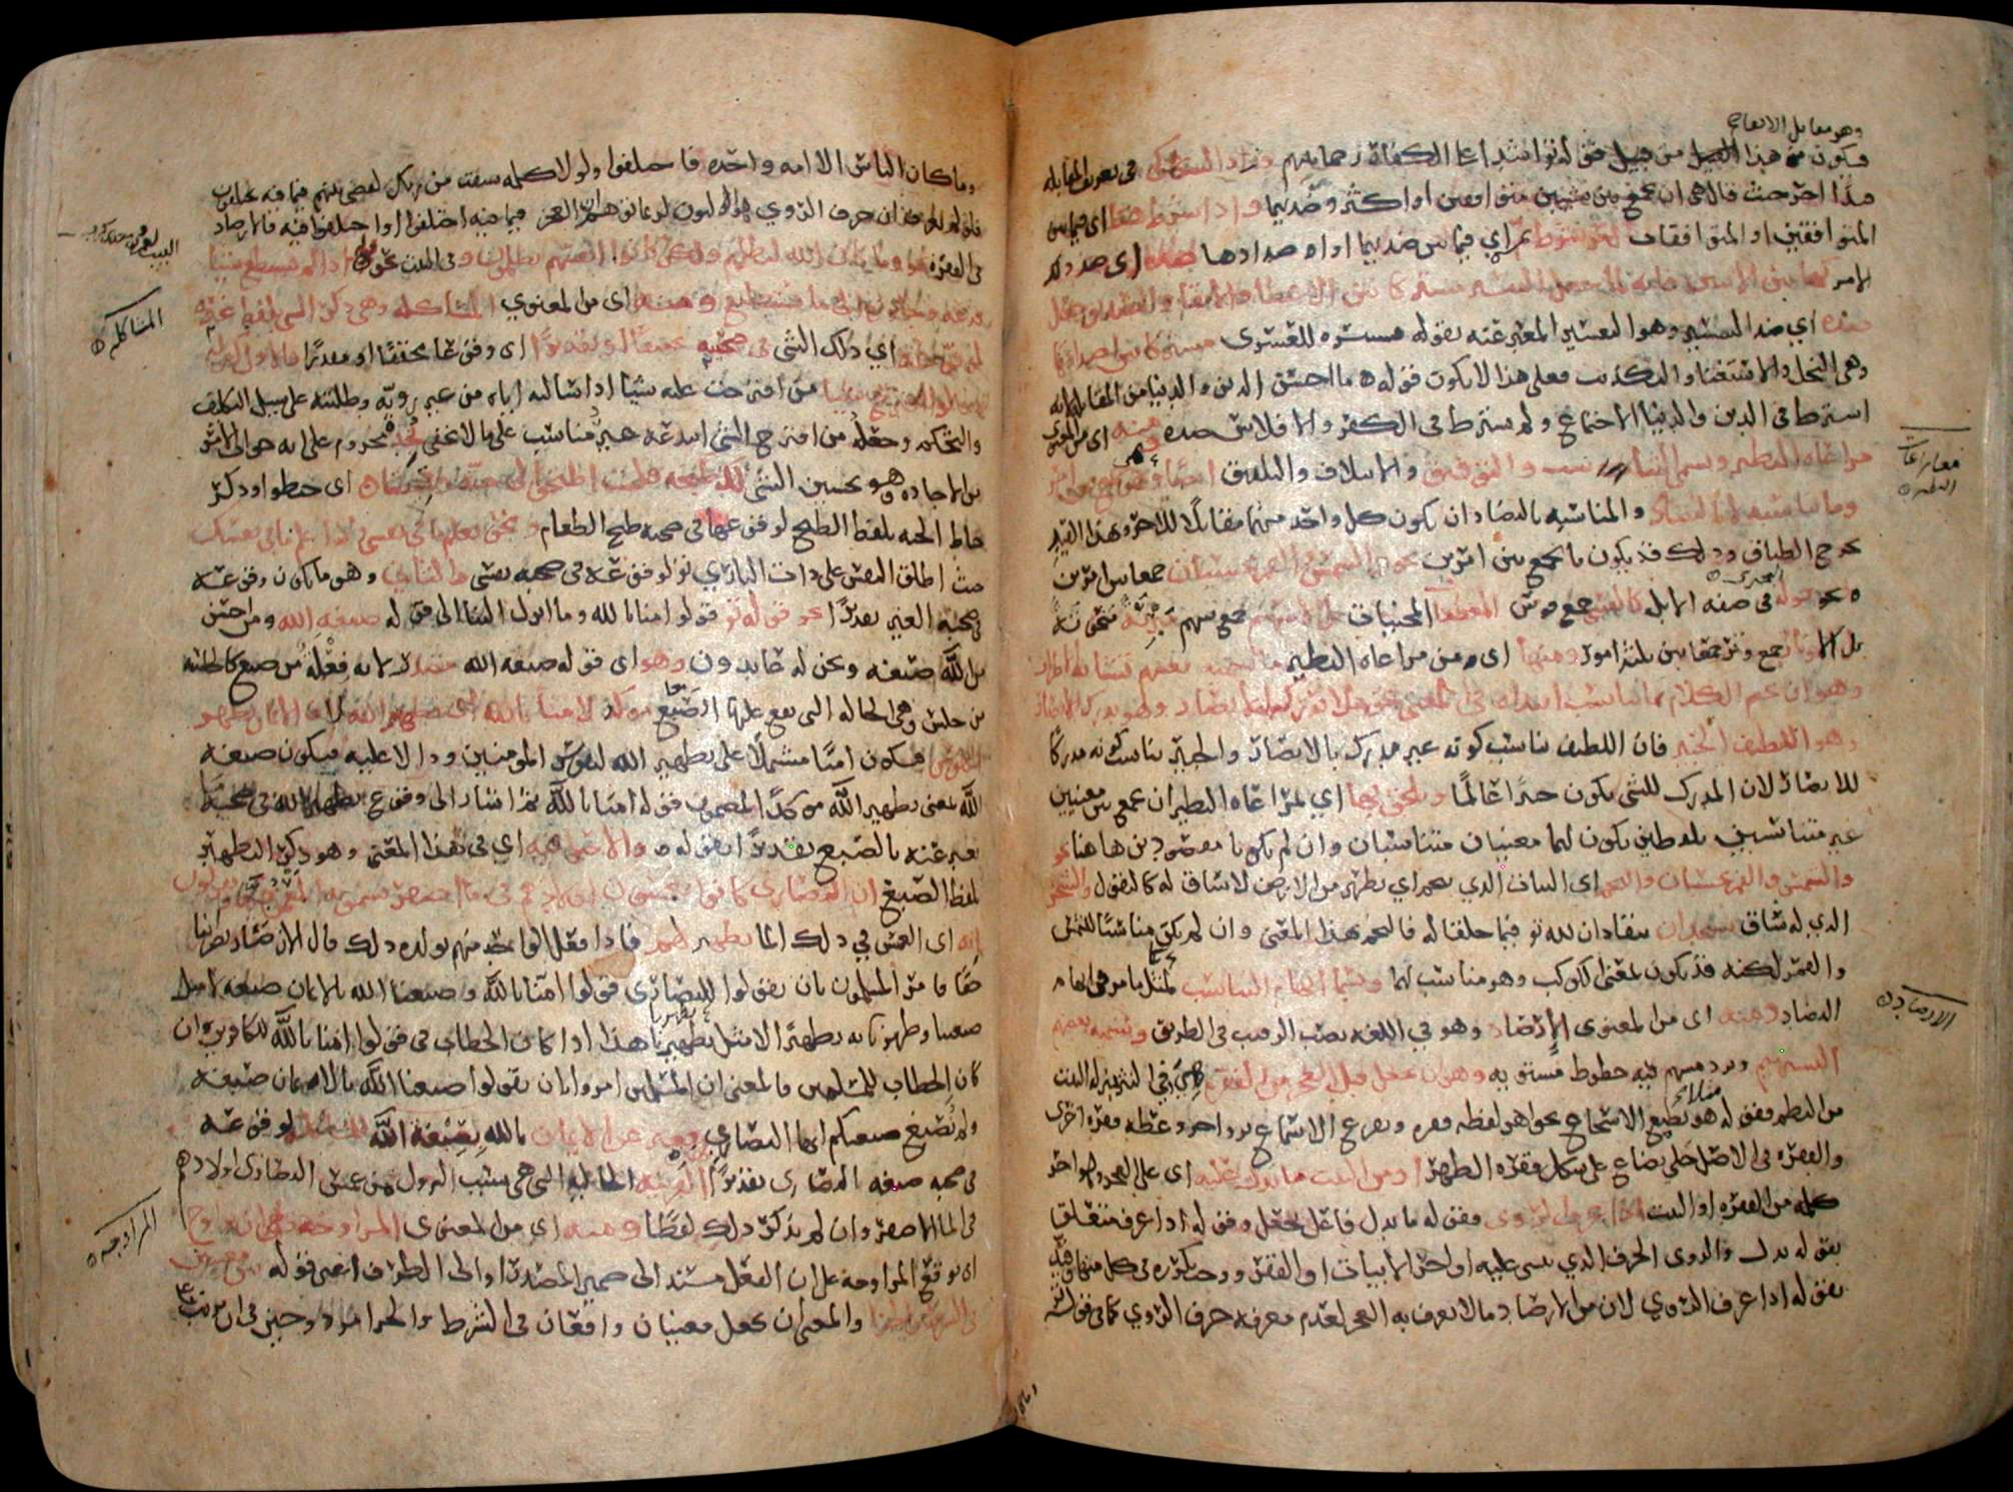 وهو مقابل الاتفاق
فيكون من هذا القبيل من قبيل قوله تعالى اشداء على الكفار رحماء بينهم وزاد السكاكي في تعريف المقابلة
قيدا اخر حيث قال هي ان تجمع بين شيئين متوافقين او اكثر وضديهما واذا شرط هنا اي فيما بين
المتوافقين او المتوافقات امر شرط ثم اي فيما بين ضديهما او اضدادها ضده اي ضد ذلك
الامر كهاتين الايتين فانه لما جعل التيسير مشتركا بين الاعطاء والاتقاء والتصديق جعل
ضده اي ضد التيسير وهو التعسير المعبر عنه بقوله فسنيسره للعسرى مشتركا بين اضدادها
وهي البخل والاستغناء والتكذيب فعلى هذا لا يكون قوله ما احسن الدين والدنيا من المقابلة لانه
اشترط في الدين والدنيا الاجتماع ولم يشترط في الكفر والافلاس ضده ومنه اي من المعنوي
مراعاة النظير ويسمى التناسب والتوفيق والايتلاف والتلفيق ايضا وهي جمع امر
وما يناسبه لا بالتضاد والمناسبة بالتضاد ان يكون كل واحد منهما مقابلا للاخر وبهذا القيد
يخرج الطباق وذلك قد يكون بالجمع بين امرين نحو الشمس والقمر بحسبان جمعا بين امرين
ونحو قوله في صفة الابل كالقسي جمع قوس المعطفات المحنيات بل الاسهم جمع سهم مبرية منحوتة
بل الاوتار جمع وتر جمع بين ثلثة امور ومنها اي ومن مراعاة النظير ما يسميه بعضهم تشابه الاطراف
وهو ان يختم الكلام بما يناسب ابتداءه في المعنى نحو لا تدركه الابصار وهو يدرك الابصار
وهو اللطيف الخبير فان اللطيف يناسب كونه غير مدرك بالابصار والخبير يناسب كونه مدركا
للابصار لان المدرك للشي يكون خبيرا عالما ويلحق بها اي بمراعاة النظير ان يجمع بين معنيين
غير متناسبين بلفظين يكون لهما معنيان متناسبان وان لم يكونا مقصودين هاهنا نحو
والشمس والقمر بحسبان والنجم اي النبات الذي ينجم اي يظهر من الارض لا ساق له كالبقول والشجر
الذي له ساق يسجدان ينقادان لله تعالى فيما خلقا له فالنجم بهذا المعنى وان لم يكن مناسبا للشمس
والقمر لكنه قد يكون بمعنى الكوكب وهو مناسب لهما ويسمى ايهام التناسب لمثل ما مر في ايهام
التضاد ومنه اي من المعنوي الارصاد وهو في اللغة نصب الرقيب في الطريق ويسميه بعضهم
التسهيم وبرد مسهم فيه خطوط مستوية وهو ان يجعل قبل العجز من الفقرة هي في النثر بمنزلة البيت
من النظم فقوله هو يطبع الاسجاع بجواهر لفظه فقرة ويقرع الاسماع بزواجر وعظه فقرة اخرى
والفقرة في الاصل حلي يصاغ على شكل فقرة الظهر او من البيت ما يدل عليه اي على العجز وهو اخر
كلمة من الفقرة او البيت اذا عرف الروي فقوله ما يدل فاعل يجعل وقوله اذا عرف متعلق
بقوله يدل والروي الحرف الذي يبنى عليه اواخر الابيات او الفقر ويجب تكرره في كل منها وقيد
بقوله اذا عرف الروي لان من الارصاد ما لا يعرف به العجز لعدم معرفة حرف الروي كما في قوله تعالى
مراعاة
النظير
الارصاد
وما كان الناس الا امة واحدة فاختلفوا ولولا كلمة سبقت من ربك لقضي بينهم فيما فيه يختلفون
فلو لم يعرف ان حرف الروي هو النون لربما توهم ان العجز فيما فيه اختلفوا او اختلفوا فيه فالارصاد
في الفقرة نحو وما كان الله ليظلمهم ولكن كانوا انفسهم يظلمون وفي البيت نحو قوله اذا لم تستطع شيئا
فدعه وجاوزه الى ما تستطيع ومنه اي من المعنوي المشاكلة وهي ذكر الشي بلفظ غيره
لوقوعه اي ذلك الشي في صحبته تحقيقا او تقديرا اي وقوعا محققا او مقدرا فالاول كقوله
قالوا اقترح شيئا من اقترحت عليه شيئا اذا سالته اياه من غير روية وطلبته على سبيل التكليف
والتحكم وجعله من اقترح الشي ابتدعه غير مناسب على ما لا يخفى نجد مجزوم على انه جواب الامر
من الاجادة وهو تحسين الشي لك طبخه قلت اطبخوا لي جبة وقميصا اي خيطوا وذكر
خياطة الجبة بلفظ الطبخ لوقوعها في صحبة طبخ الطعام ونحوه تعلم ما في نفسي ولا اعلم ما في نفسك
حيث اطلق النفس على ذات الباري تعالى لوقوعه في صحبة نفسي والثاني وهو ما يكون وقوعه
في صحبة الغير تقديرا نحو قوله تعالى قولوا امنا بالله وما انزل الينا الى قوله صبغة الله ومن احسن
من الله صبغة ونحن له عابدون وهو اي قوله صبغة الله مصدر لانه فعلة من صبغ كالجلسة
من جلس وهي الحالة التي يقع عليها الصبغ مؤكد لامنا بالله اي تطهير الله لان الايمان يطهر
النفوس فيكون امنا مشتملا على تطهير الله لنفوس المؤمنين ودالا عليه فيكون صبغة
الله بمعنى تطهير الله مؤكدا لمضمون قوله امنا بالله ثم اشار الى وقوع تطهير الله في صحبة ما
يعبر عنه بالصبغ تقديرا بقوله والاصل فيه اي في هذا المعنى وهو ذكر التطهير
بلفظ الصبغ ان النصارى كانوا يغمسون اولادهم في ماء اصفر يسمونه المعمودية ويقولون
انه اي الغمس في ذلك الماء تطهير لهم فاذا فعل الواحد منهم بولده ذلك قال الان صار نصرانيا
حقا فامر المسلمون بان يقولوا للنصارى قولوا امنا بالله وصبغنا الله بالايمان صبغة لا مثل
صبغتنا وطهرنا به تطهيرا لا مثل تطهيرنا هذا اذا كان الخطاب في قولوا امنا بالله للكافرين وان
كان الخطاب للمسلمين فالمعنى ان المسلمين امروا بان يقولوا صبغنا الله بالايمان صبغة
ولم نصبغ صبغتكم ايها النصارى فعبر عن الايمان بالله بصبغة الله للمشاكلة لوقوعه
في صحبة صبغة النصارى تقديرا القرينة الحالية التي هي سبب النزول من غمس النصارى اولادهم
في الماء الاصفر وان لم يذكر ذلك لفظا ومنه اي من المعنوي المزاوجة وهي ان يزاوج
اي توقع المزاوجة على ان الفعل مسند الى ضمير المصدر او الى الظرف اعني قوله بين معنيين
في الشرط والجزا والمعنى ان يجعل معنيان واقعان في الشرط والجزا مزدوجين في ان يرتب
المشاكلة
المزاوجة